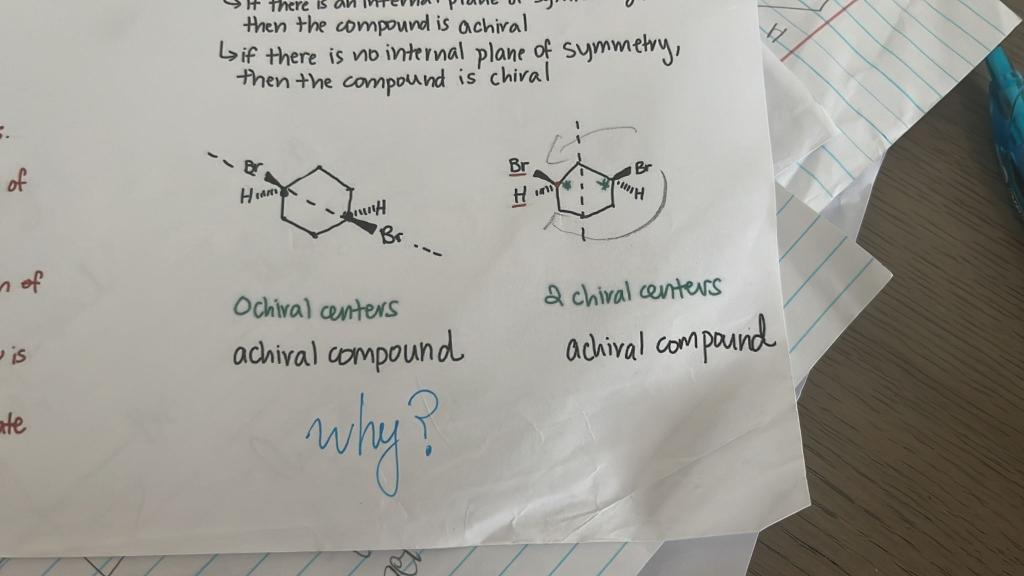 ↳ if there is an internal plane of
then the compound is achiral
↳ if there is no internal plane of symmetry,
then the compound is chiral
s.
of
n of
is
ate
H
Br
H
H
Br
Br
H
Br
H
0 chiral centers
2 chiral centers
achiral compound
achiral compound
why?